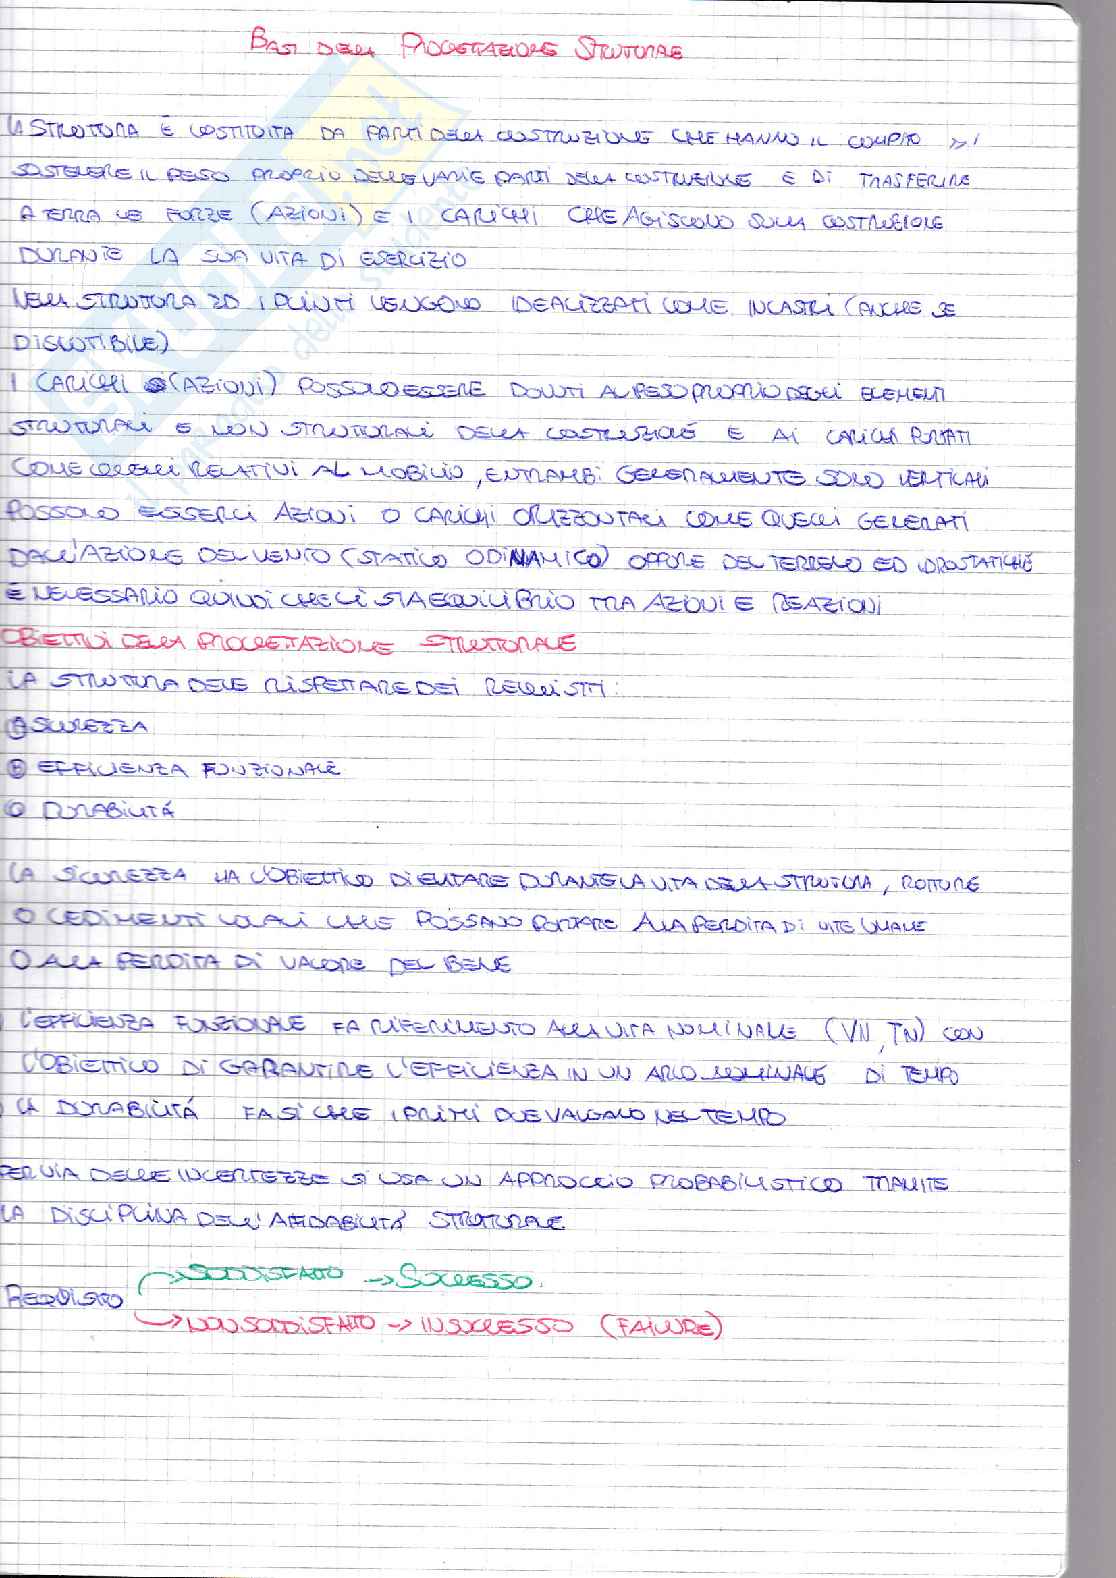 BASI DELLA PROGETTAZIONE STRUTTURALE
LA STRUTTURA È COSTITUITA DA PARTI DELLA COSTRUZIONE CHE HANNO IL COMPITO DI
SOSTENERE IL PESO PROPRIO DELLE VARIE PARTI DELLA COSTRUZIONE E DI TRASFERIRE
A TERRA LE FORZE (AZIONI) E I CARICHI CHE AGISCONO SULLA COSTRUZIONE
DURANTE LA SUA VITA DI ESERCIZIO
NELLA STRUTTURA 2D I PLINTI VENGONO IDEALIZZATI COME INCASTRI (ANCHE SE
DISCUTIBILE)
I CARICHI (AZIONI) POSSONO ESSERE DOVUTI AL PESO PROPRIO DEGLI ELEMENTI
STRUTTURALI E NON STRUTTURALI DELLA COSTRUZIONE E AI CARICHI PORTATI
COME QUELLI RELATIVI AL MOBILIO, ENTRAMBI GENERALMENTE SONO VERTICALI
POSSONO ESSERCI AZIONI O CARICHI ORIZZONTALI COME QUELLI GENERATI
DALL'AZIONE DEL VENTO (STATICO O DINAMICO) OPPURE DEL TERRENO ED IDROSTATICHE
È NECESSARIO QUINDI CHE CI SIA EQUILIBRIO TRA AZIONI E REAZIONI
OBIETTIVI DELLA PROGETTAZIONE STRUTTURALE
LA STRUTTURA DEVE RISPETTARE DEI REQUISITI:
A SICUREZZA
B EFFICIENZA FUNZIONALE
C DURABILITÁ
LA SICUREZZA HA L'OBIETTIVO DI EVITARE DURANTE LA VITA DELLA STRUTTURA, ROTTURE
O CEDIMENTI LOCALI CHE POSSANO PORTARE ALLA PERDITA DI VITE UMANE
O ALLA PERDITA DI VALORE DEL BENE
L'EFFICIENZA FUNZIONALE FA RIFERIMENTO ALLA VITA NOMINALE (VN, TN) CON
L'OBIETTIVO DI GARANTIRE L'EFFICIENZA IN UN ARCO NOMINALE DI TEMPO
LA DURABILITÁ FA SI CHE I PRIMI DUE VALGANO NEL TEMPO
PER VIA DELLE INCERTEZZE SI USA UN APPROCCIO PROBABILISTICO TRAMITE
LA DISCIPLINA DELL'AFFIDABILITÁ STRUTTURALE
SODDISFATTO → SUCCESSO
REQUISITO
NON SODDISFATTO → INSUCCESSO (FAILURE)